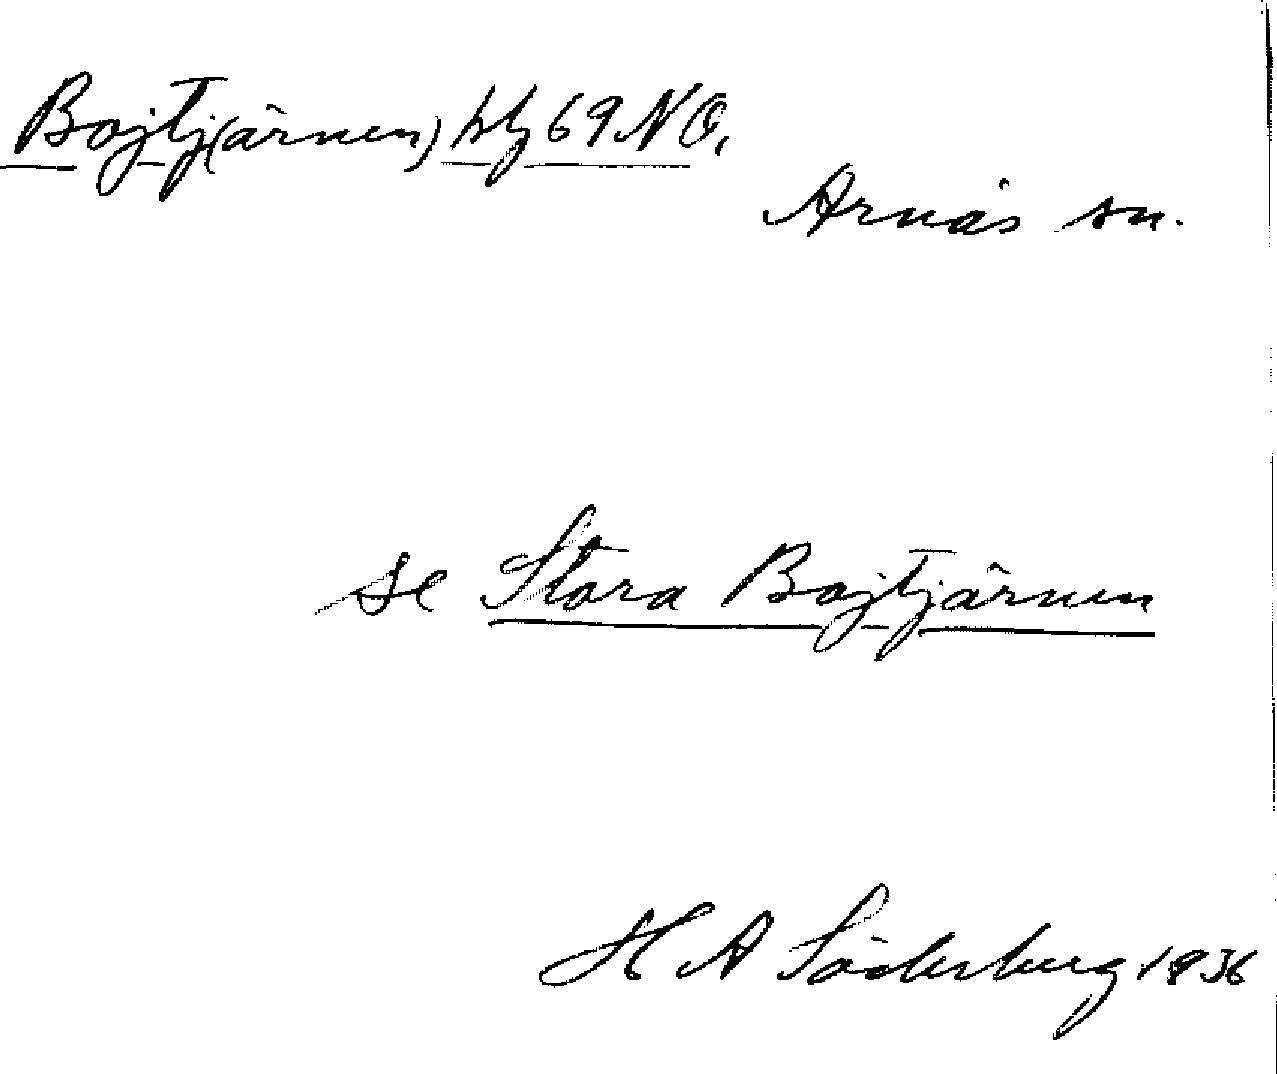 Bojtj(ärnen) blj 69 NO.
Arnäs sn.
se Stora Bojtjärnen
H A Söderberg 1936